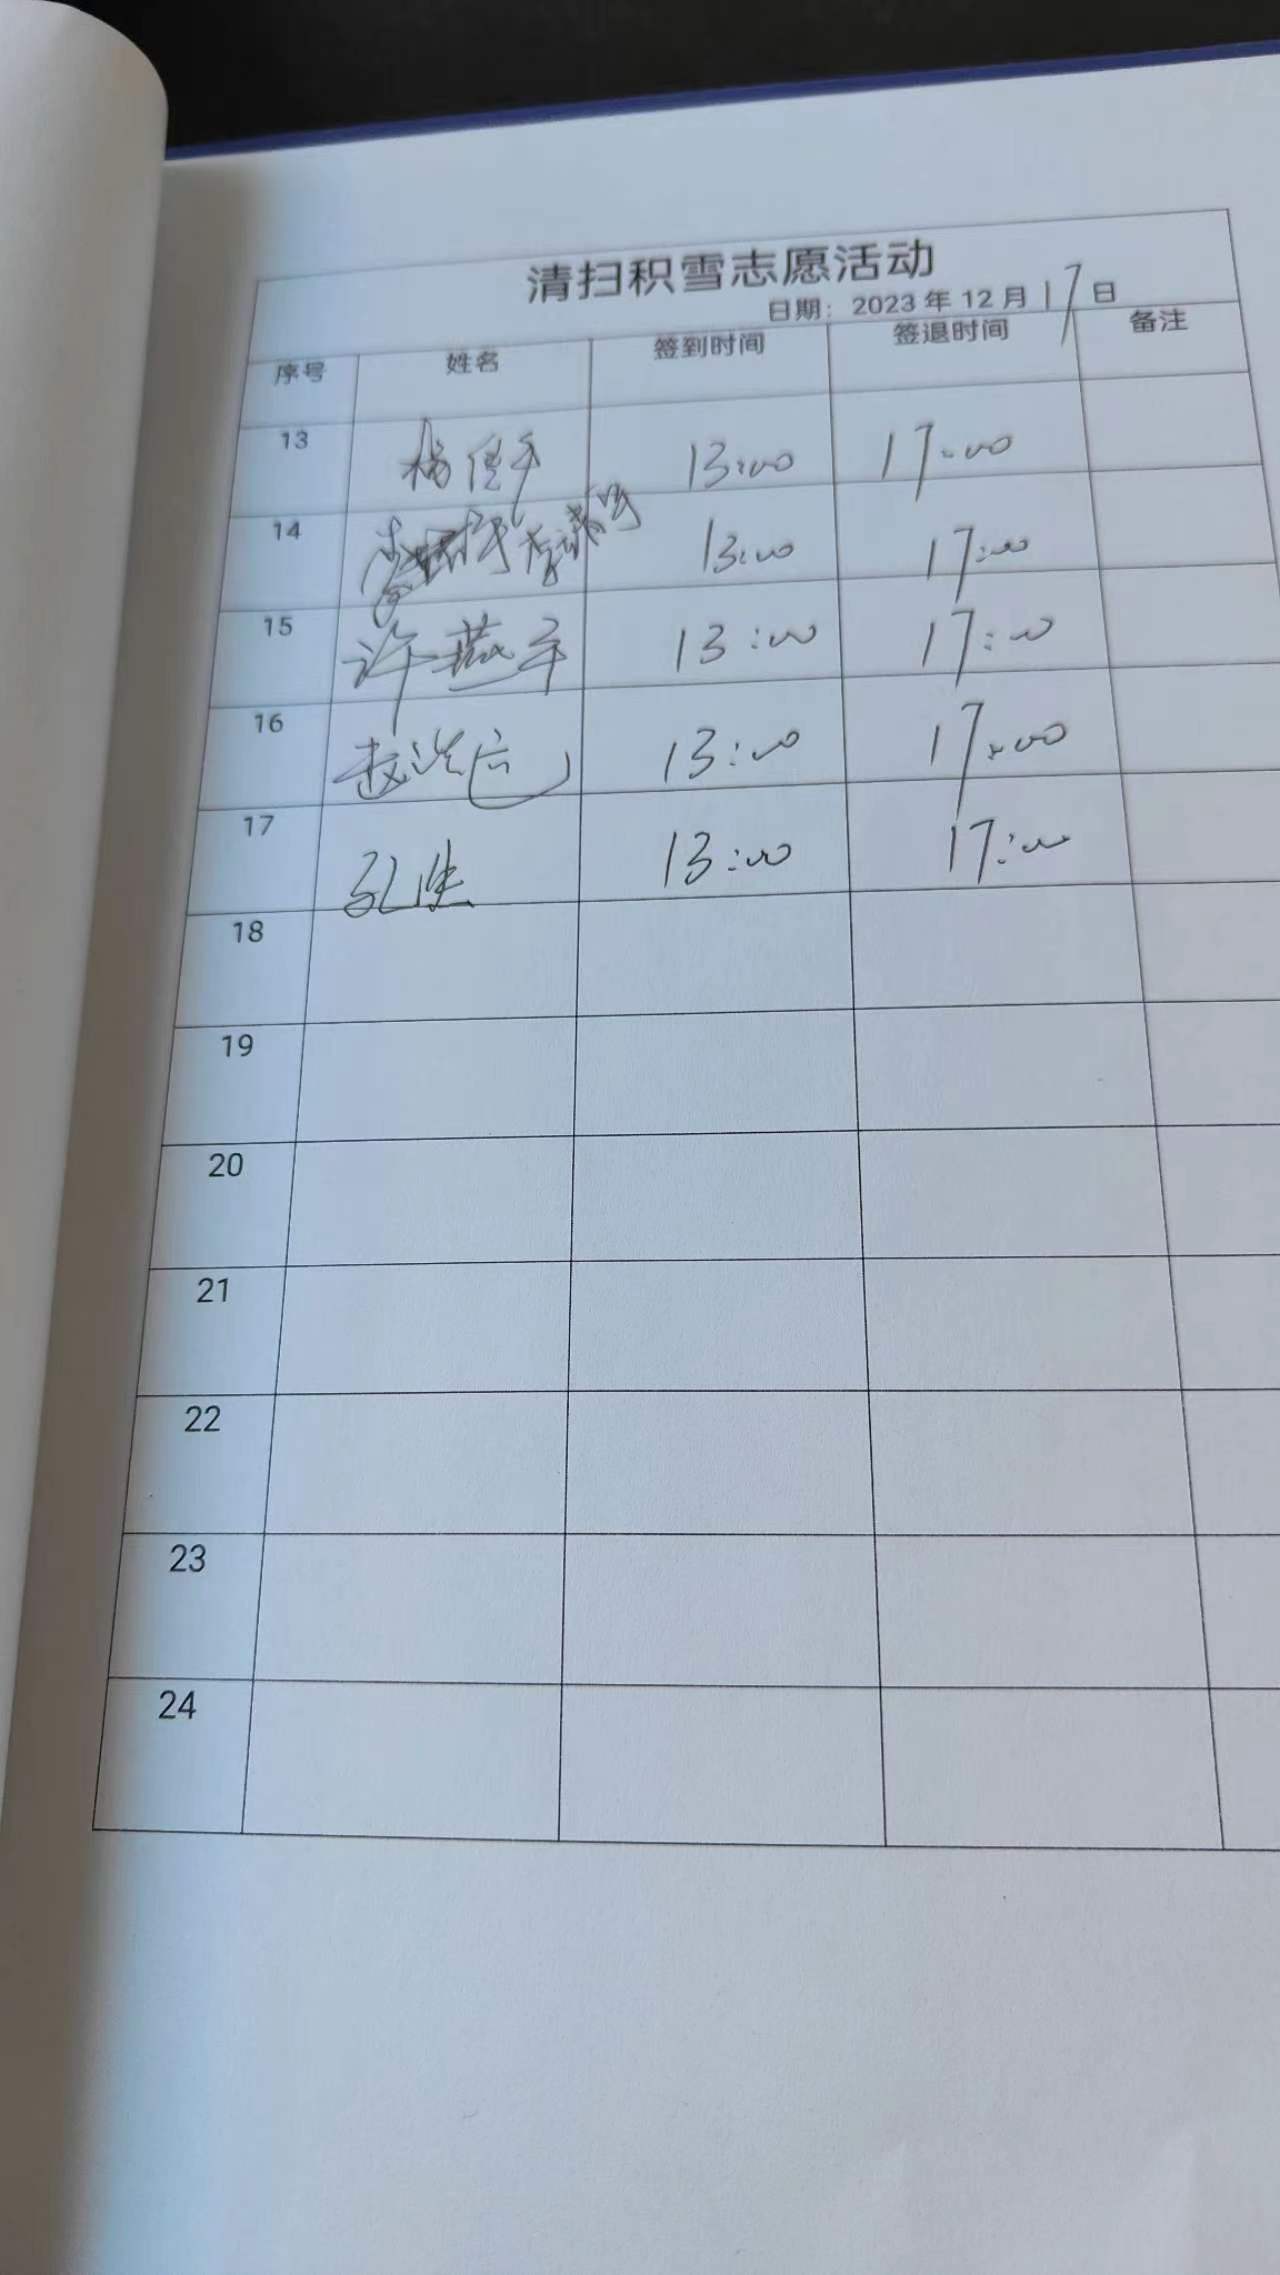 清扫积雪志愿活动
日期：2023 年 12 月 17 日
序号 姓名 签到时间 签退时间 备注
13 杨 13:00 17:00
14 13:00 17:00
15 许燕平 13:00 17:00
16 赵 13:00 17:00
17 孔 13:00 17:00
18
19
20
21
22
23
24